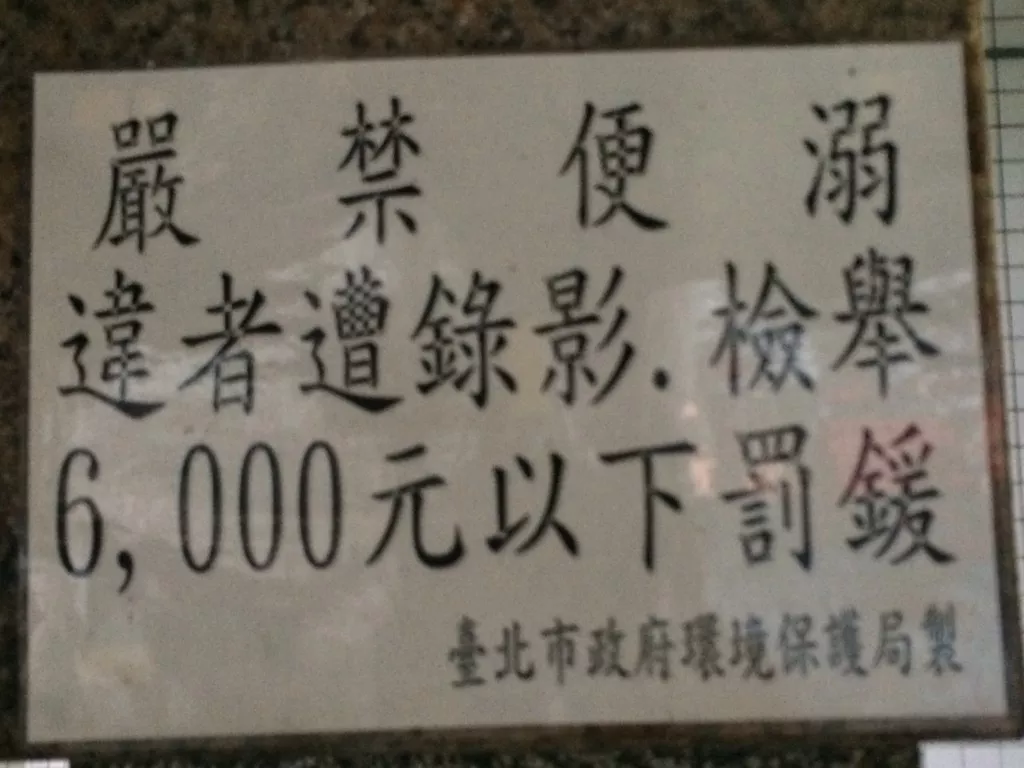 嚴禁便溺
違者遭錄影.檢舉
6,000元以下罰鍰
臺北市政府環境保護局製